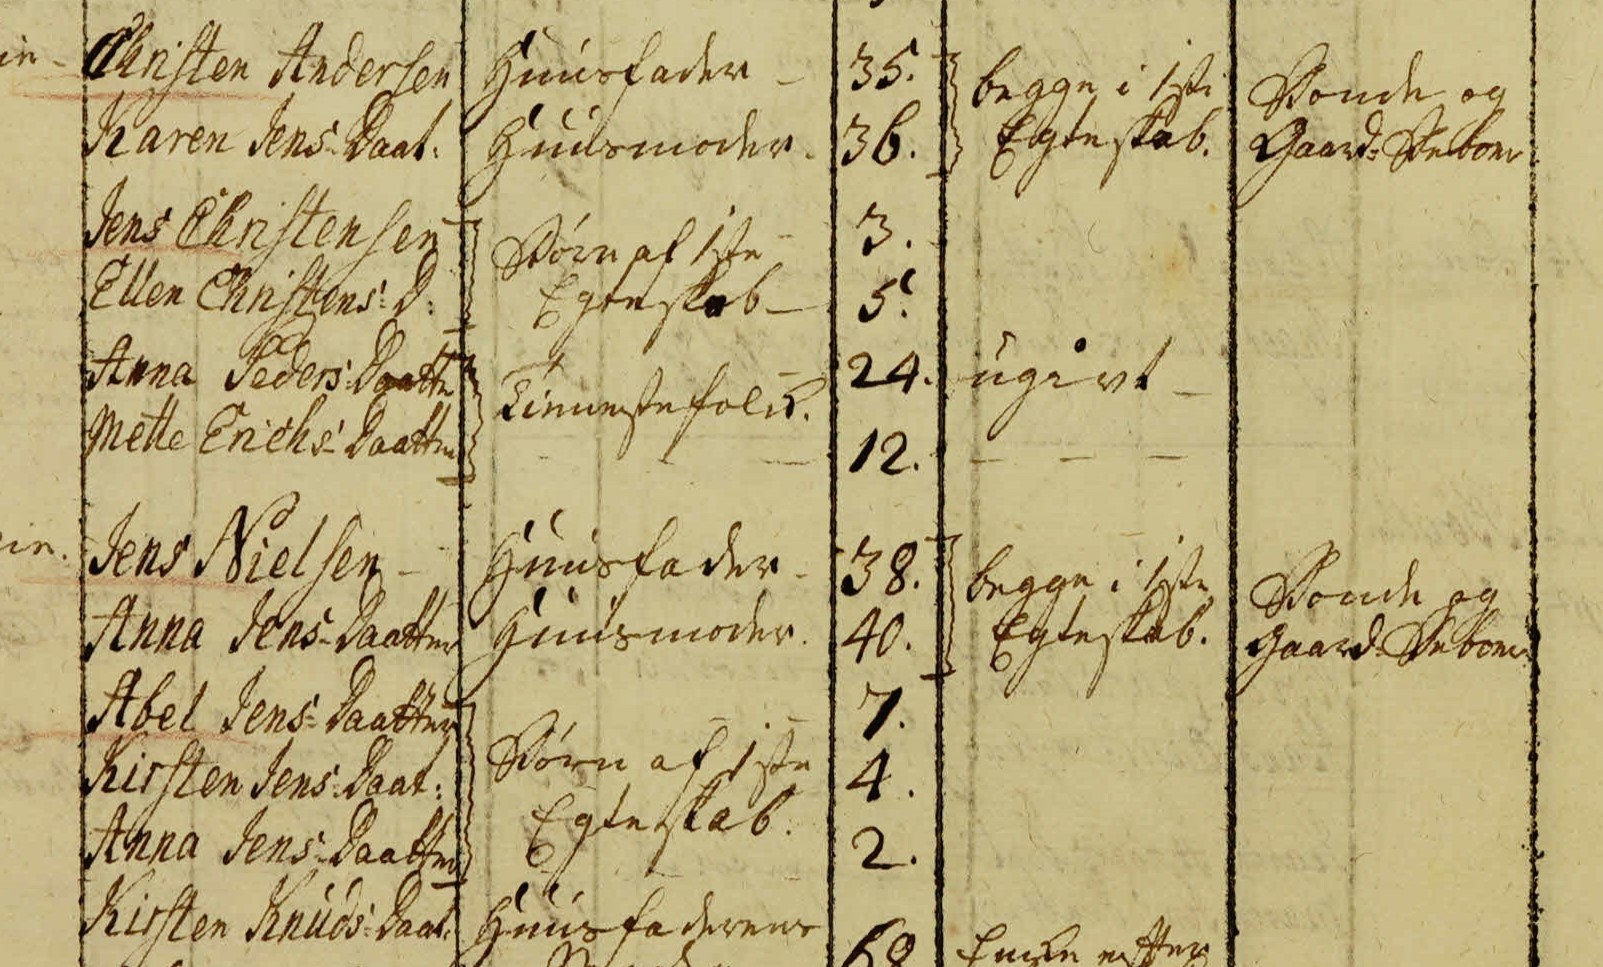 Christen Andersen Huusfader - 35. begge i 1ste Bonde og
Karen Jens-Daat: Huusmoder. 36. Egteskab. Gaard-Beboer
Jens Christensen Børn af 1ste 3.
Ellen Christens-D: Egteskab - 5.
Anna Peders-Daatter Tienestefolk. 24. ugivt -
Mette Erichs-Daatter 12. - - -
Jens Nielsen - Huusfader - 38. begge i 1ste Bonde og
Anna Jens-Daatter Huusmoder. 40. Egteskab. Gaard-Beboer
Abel Jens-Daatter Børn af 1ste 7.
Kirsten Jens-Daat: Egteskab. 4.
Anna Jens-Daatter 2.
Kirsten Knuds-Daat: Huusfaderens 68 Enke efter